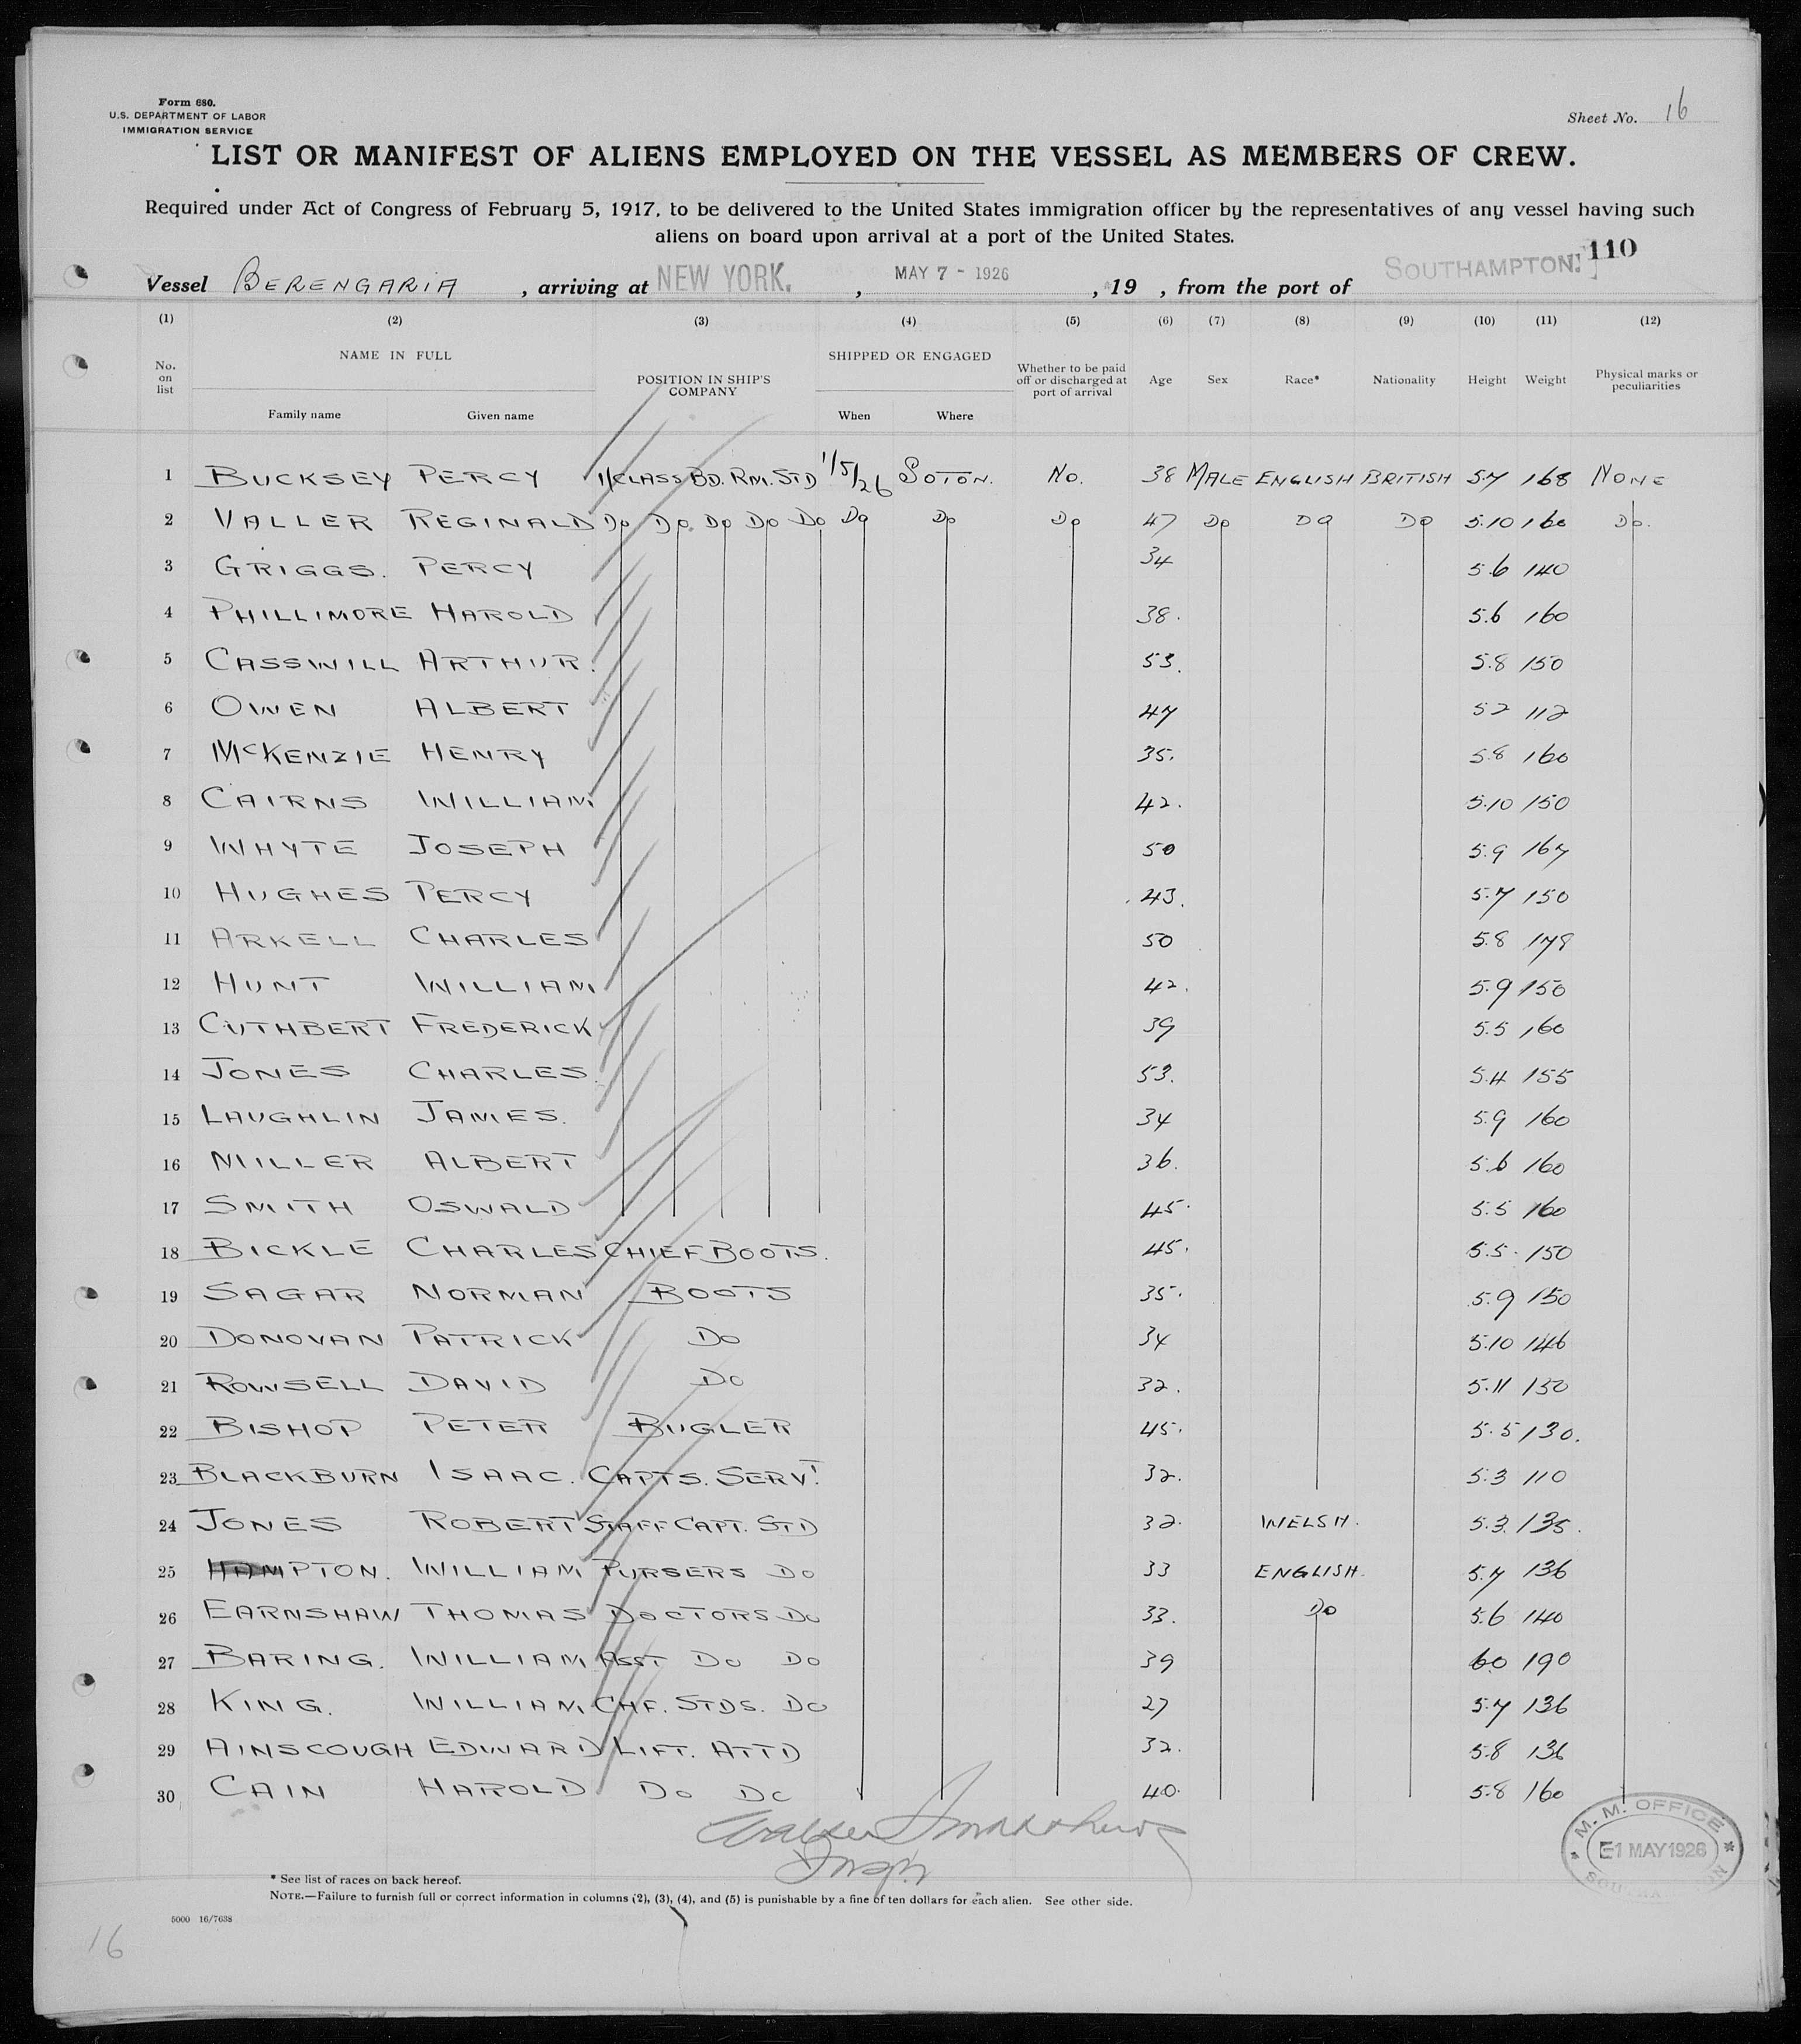 Form 680.
U.S. DEPARTMENT OF LABOR
IMMIGRATION SERVICE
Sheet No. 16
LIST OR MANIFEST OF ALIENS EMPLOYED ON THE VESSEL AS MEMBERS OF CREW.
Required under Act of Congress of February 5, 1917, to be delivered to the United States immigration officer by the representatives of any vessel having such
aliens on board upon arrival at a port of the United States.
110
Vessel BERENGARIA, arriving at NEW YORK., MAY 7 - 1926, 19 , from the port of SOUTHAMPTON.
(1) (2) (3) (4) (5) (6) (7) (8) (9) (10) (11) (12)
No. on list NAME IN FULL Family name Given name POSITION IN SHIP'S COMPANY SHIPPED OR ENGAGED When Where Whether to be paid off or discharged at port of arrival Age Sex Race* Nationality Height Weight Physical marks or peculiarities
1 BUCKSEY PERCY 1/CLASS BD. RM. STD 1/5/26 SOTON. NO. 38 MALE ENGLISH BRITISH 5.7 168 NONE
2 VALLER REGINALD DO DO DO DO DO DO DO DO 47 DO DO DO 5.10 160 DO.
3 GRIGGS. PERCY 34 5.6 140
4 PHILLIMORE HAROLD 38. 5.6 160
5 CASSWILL ARTHUR. 53. 5.8 150
6 OWEN ALBERT 47 5 2 112
7 McKENZIE HENRY 35. 5.8 160
8 CAIRNS WILLIAM 42. 5.10 150
9 WHYTE JOSEPH 50 5.9 167
10 HUGHES PERCY 43. 5.7 150
11 ARKELL CHARLES 50 5.8 178
12 HUNT WILLIAM 42. 5.9 150
13 CUTHBERT FREDERICK 39 5.5 160
14 JONES CHARLES. 53. 5.4 155
15 LAUGHLIN JAMES. 34 5.9 160
16 MILLER ALBERT 36. 5.6 160
17 SMITH OSWALD 45. 5.5 160
18 BICKLE CHARLES CHIEF BOOTS. 45. 5.5. 150
19 SAGAR NORMAN BOOTS 35. 5.9 150
20 DONOVAN PATRICK DO 34 5.10 146
21 ROWSELL DAVID DO 32. 5.11 150
22 BISHOP PETER BUGLER 45. 5.5 130.
23 BLACKBURN ISAAC. CAPTS. SERVT. 32. 5.3 110
24 JONES ROBERT STAFF CAPT. STD 32. WELSH. 5.3. 135.
25 HAMPTON. WILLIAM PURSERS DO 33 ENGLISH. 5.7 136
26 EARNSHAW THOMAS DOCTORS DO 33. DO 5.6 140
27 BARING. WILLIAM ASST DO DO 39 6.0 190
28 KING. WILLIAM CHF. STDS. DO 27 5.7 136
29 AINSCOUGH EDWARD LIFT. ATTD 32. 5.8 136
30 CAIN HAROLD DO DO 40. 5.8 160
M. M. OFFICE
E1 MAY 1926
* See list of races on back hereof.
NOTE.—Failure to furnish full or correct information in columns (2), (3), (4), and (5) is punishable by a fine of ten dollars for each alien. See other side.
5000 16/7638
16